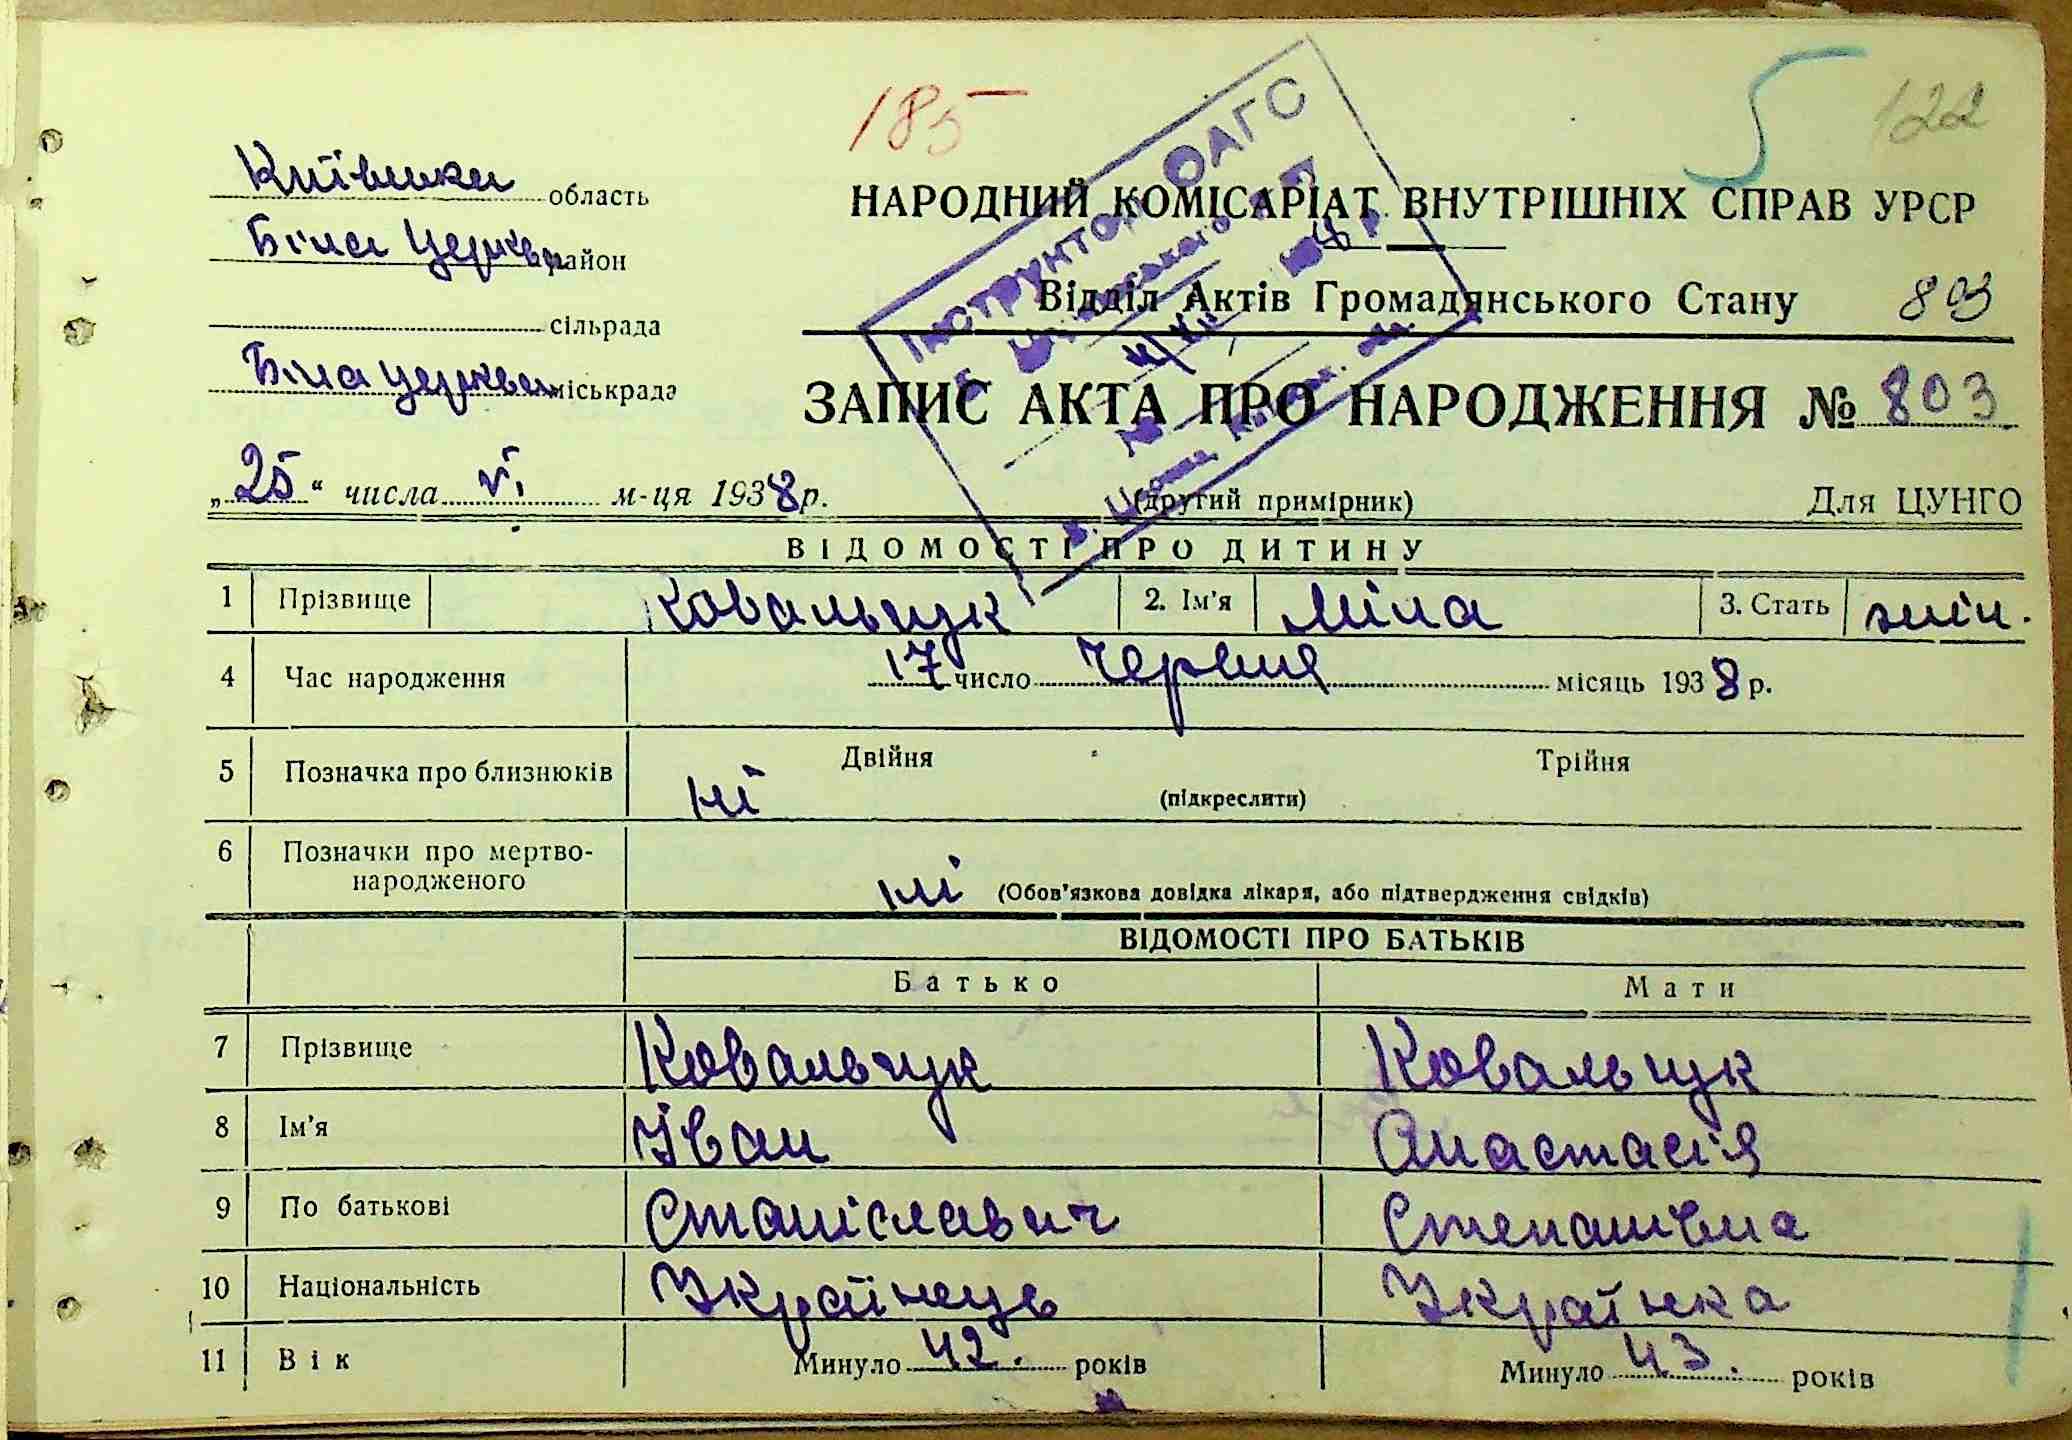 185
122
Київська область
НАРОДНИЙ КОМІСАРІАТ ВНУТРІШНІХ СПРАВ УРСР
Біла Церква район
Відділ Актів Громадянського Стану 803
сільрада
Біла Церква міськрада
ЗАПИС АКТА ПРО НАРОДЖЕННЯ № 803
„25“ числа VI м-ця 1938 р. (другий примірник) Для ЦУНГО
Інструктор ОАГС
ВІДОМОСТІ ПРО ДИТИНУ
1 Прізвище Ковальчук 2. Ім'я Міла 3. Стать жін.
4 Час народження 17 число червня місяць 1938 р.
5 Позначка про близнюків ні Двійня Трійня
(підкреслити)
6 Позначки про мертво-
народженого ні (Обов'язкова довідка лікаря, або підтвердження свідків)
ВІДОМОСТІ ПРО БАТЬКІВ
Батько Мати
7 Прізвище Ковальчук Ковальчук
8 Ім'я Іван Анастасія
9 По батькові Станіславич Степанівна
10 Національність Українець Українка
11 Вік Минуло 42. років Минуло 43. років